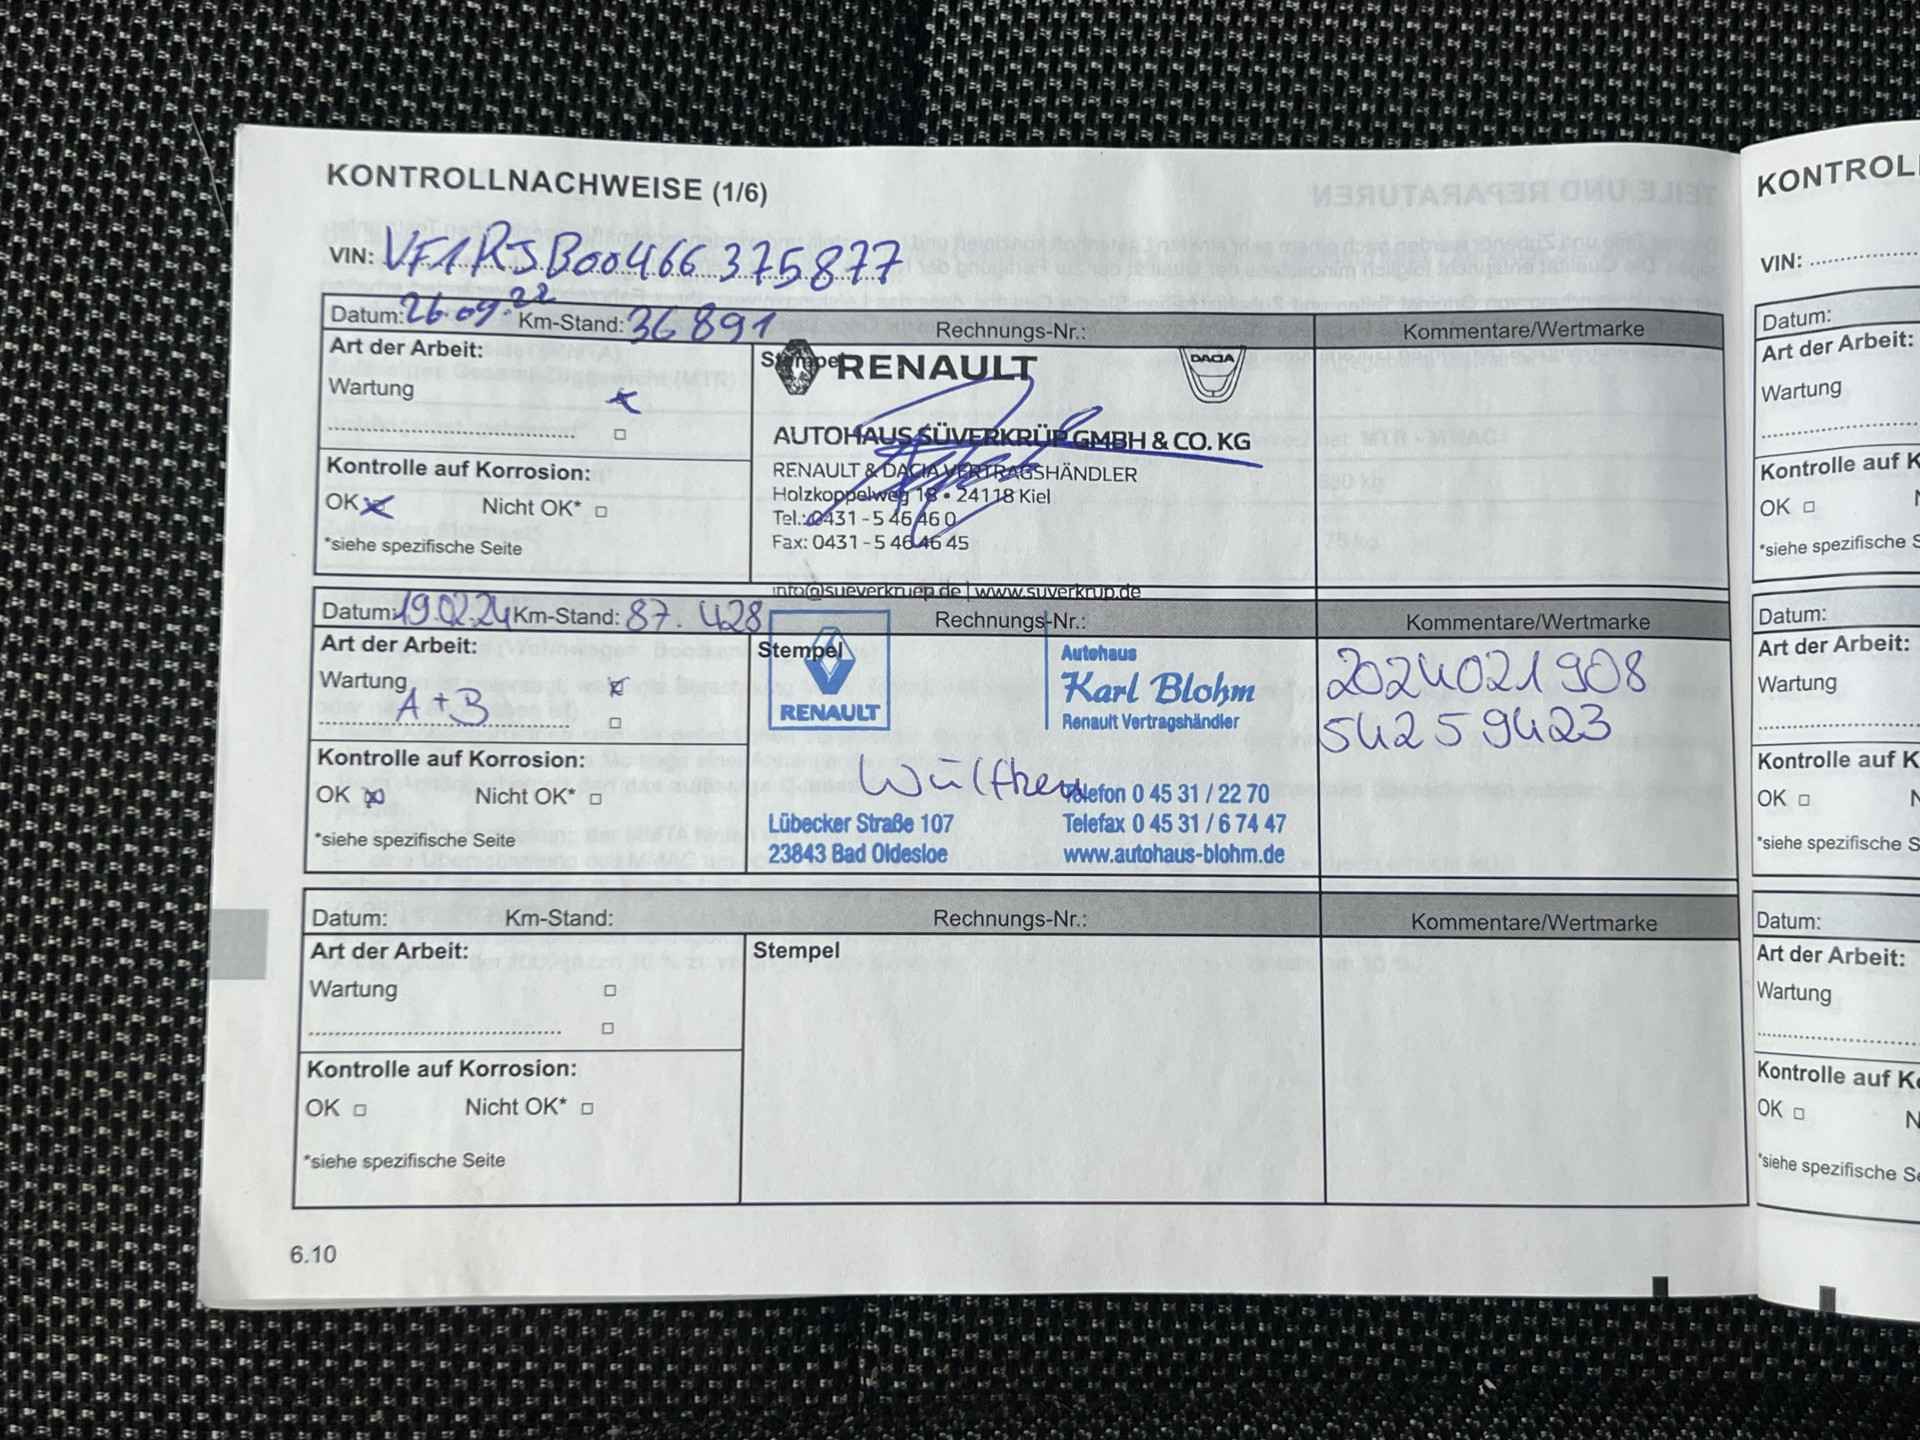 KONTROLLNACHWEISE (1/6)
VIN: VF1RJB00466375877
Datum: 26.09.22 Km-Stand: 36891 Rechnungs-Nr.: Kommentare/Wertmarke
Art der Arbeit:
Wartung
Stempel
RENAULT
DACIA
AUTOHAUS SÜVERKRÜP GMBH & CO. KG
RENAULT & DACIA VERTRAGSHÄNDLER
Holzkoppelweg 18 • 24118 Kiel
Tel.: 0431 - 5 46 46 0
Fax: 0431 - 5 46 46 45
info@sueverkruep.de | www.suverkrup.de
Kontrolle auf Korrosion:
OK Nicht OK*
*siehe spezifische Seite
Datum: 19.02.24 Km-Stand: 87.428 Rechnungs-Nr.: Kommentare/Wertmarke
Art der Arbeit:
Wartung
A+B
Kontrolle auf Korrosion:
OK Nicht OK*
*siehe spezifische Seite
Stempel
RENAULT
Autohaus
Karl Blohm
Renault Vertragshändler
Telefon 0 45 31 / 22 70
Lübecker Straße 107 Telefax 0 45 31 / 6 74 47
23843 Bad Oldesloe www.autohaus-blohm.de
2024021908
54259423
Datum: Km-Stand: Rechnungs-Nr.: Kommentare/Wertmarke
Art der Arbeit:
Wartung
Stempel
Kontrolle auf Korrosion:
OK Nicht OK*
*siehe spezifische Seite
6.10
KONTROLL
VIN:
Datum:
Art der Arbeit:
Wartung
Kontrolle auf K
OK
*siehe spezifische S
Datum:
Art der Arbeit:
Wartung
Kontrolle auf K
OK
*siehe spezifische S
Datum:
Art der Arbeit:
Wartung
Kontrolle auf Ko
OK N
*siehe spezifische Se